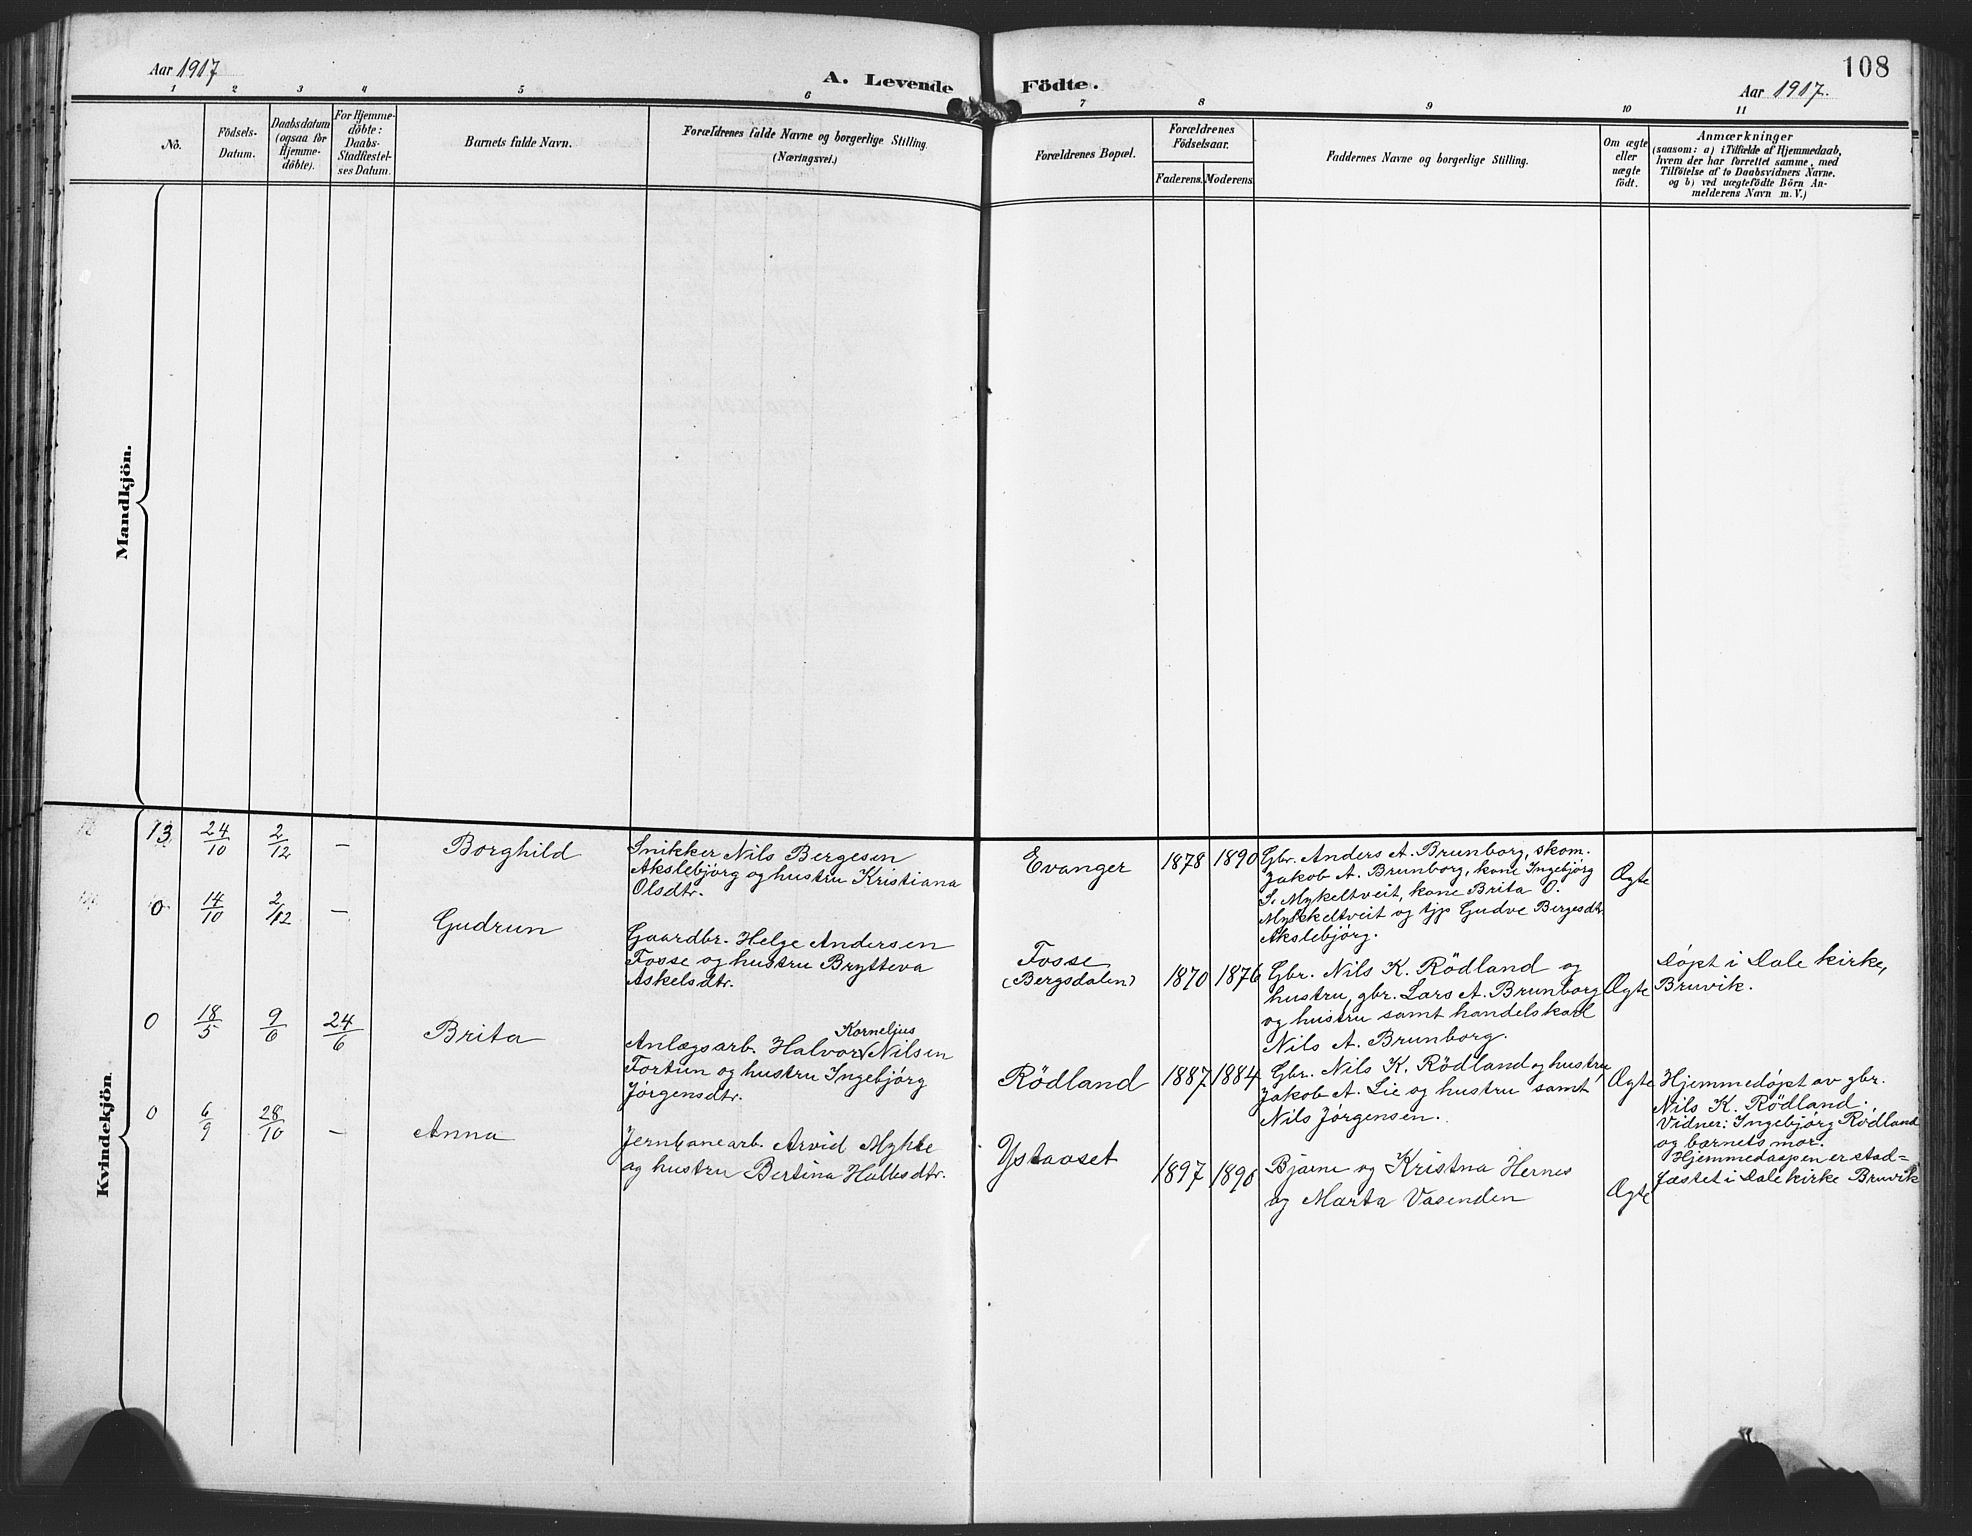 108
Aar 1917
A. Levende Födte.
Aar 1917.
1 2 3 4 5 6 7 8 9 10 11
No.
Födsels-
Datum.
Daabsdatum
(ogsaa for
Hjemme-
döbte).
For Hjemme-
döbte:
Daabs-
Stadfæstel-
ses Datum.
Barnets fulde Navn.
Forældrenes fulde Navne og borgerlige Stilling.
(Næringsvei.)
Forældrenes Bopæl.
Forældrenes
Födselsaar.
Faderens. Moderens.
Faddernes Navne og borgerlige Stilling.
Om ægte
eller
uægte
födt.
Anmærkninger
(saasom: a) i Tilfælde af Hjemmedaab,
hvem der har forrettet samme, med
Tilföielse af to Daabsvidners Navne.
og b) ved uægtefödte Börn An-
melderens Navn m. V.)
Mandkjön.
Kvindekjön.
13
24/10
2/12
—
Borghild
Snikker Nils Bergesen
Akslebjörg og hustru Kristiana
Olsdtr.
Evanger
1878
1890
Gbr. Anders A. Brunborg, skom.
Jakob A. Brunborg, kone Ingebjörg
S. Mykeltveit, kone Brita O.
Mykkeltveit og tjp Gudve Bergesdtr
Akslebjörg.
Ægte
0
14/10
2/12
—
Gudrun
Gaardbr. Helge Andersen
Fosse og hustru Brytteva
Askelsdtr.
Fosse
(Bergsdalen)
1870
1876
Gbr. Nils K. Rödland og
hustru, gbr. Lars A. Brunborg
og hustru samt handelskarl
Nils A. Brunborg.
Ægte
Döpt i Dale kirke,
Bruvik.
0
18/5
9/6
24/6
Brita
Korneljus
Anlægsarb. Halvor Nilsen
Fortun og hustru Ingebjörg
Jörgensdtr.
Rödland
1887
1884
Gbr. Nils K. Rödland og hustru,
Jakob A. Lie og hustru samt
Nils Jörgensen.
Ægte
Hjemmedöpt av gbr.
Nils K. Rödland.
Vidner: Ingebjörg Rödland
og barnets mor.
Hjemmedaapen er stad=
fæstet i Dale kirke Bruvik
0
6/9
28/10
—
Anna
Jernbanearb. Arvid
og hustru Bertina
Ystaaset
1897
Bjarne og Kristna Hernes
og Marta Vasenden
Ægte